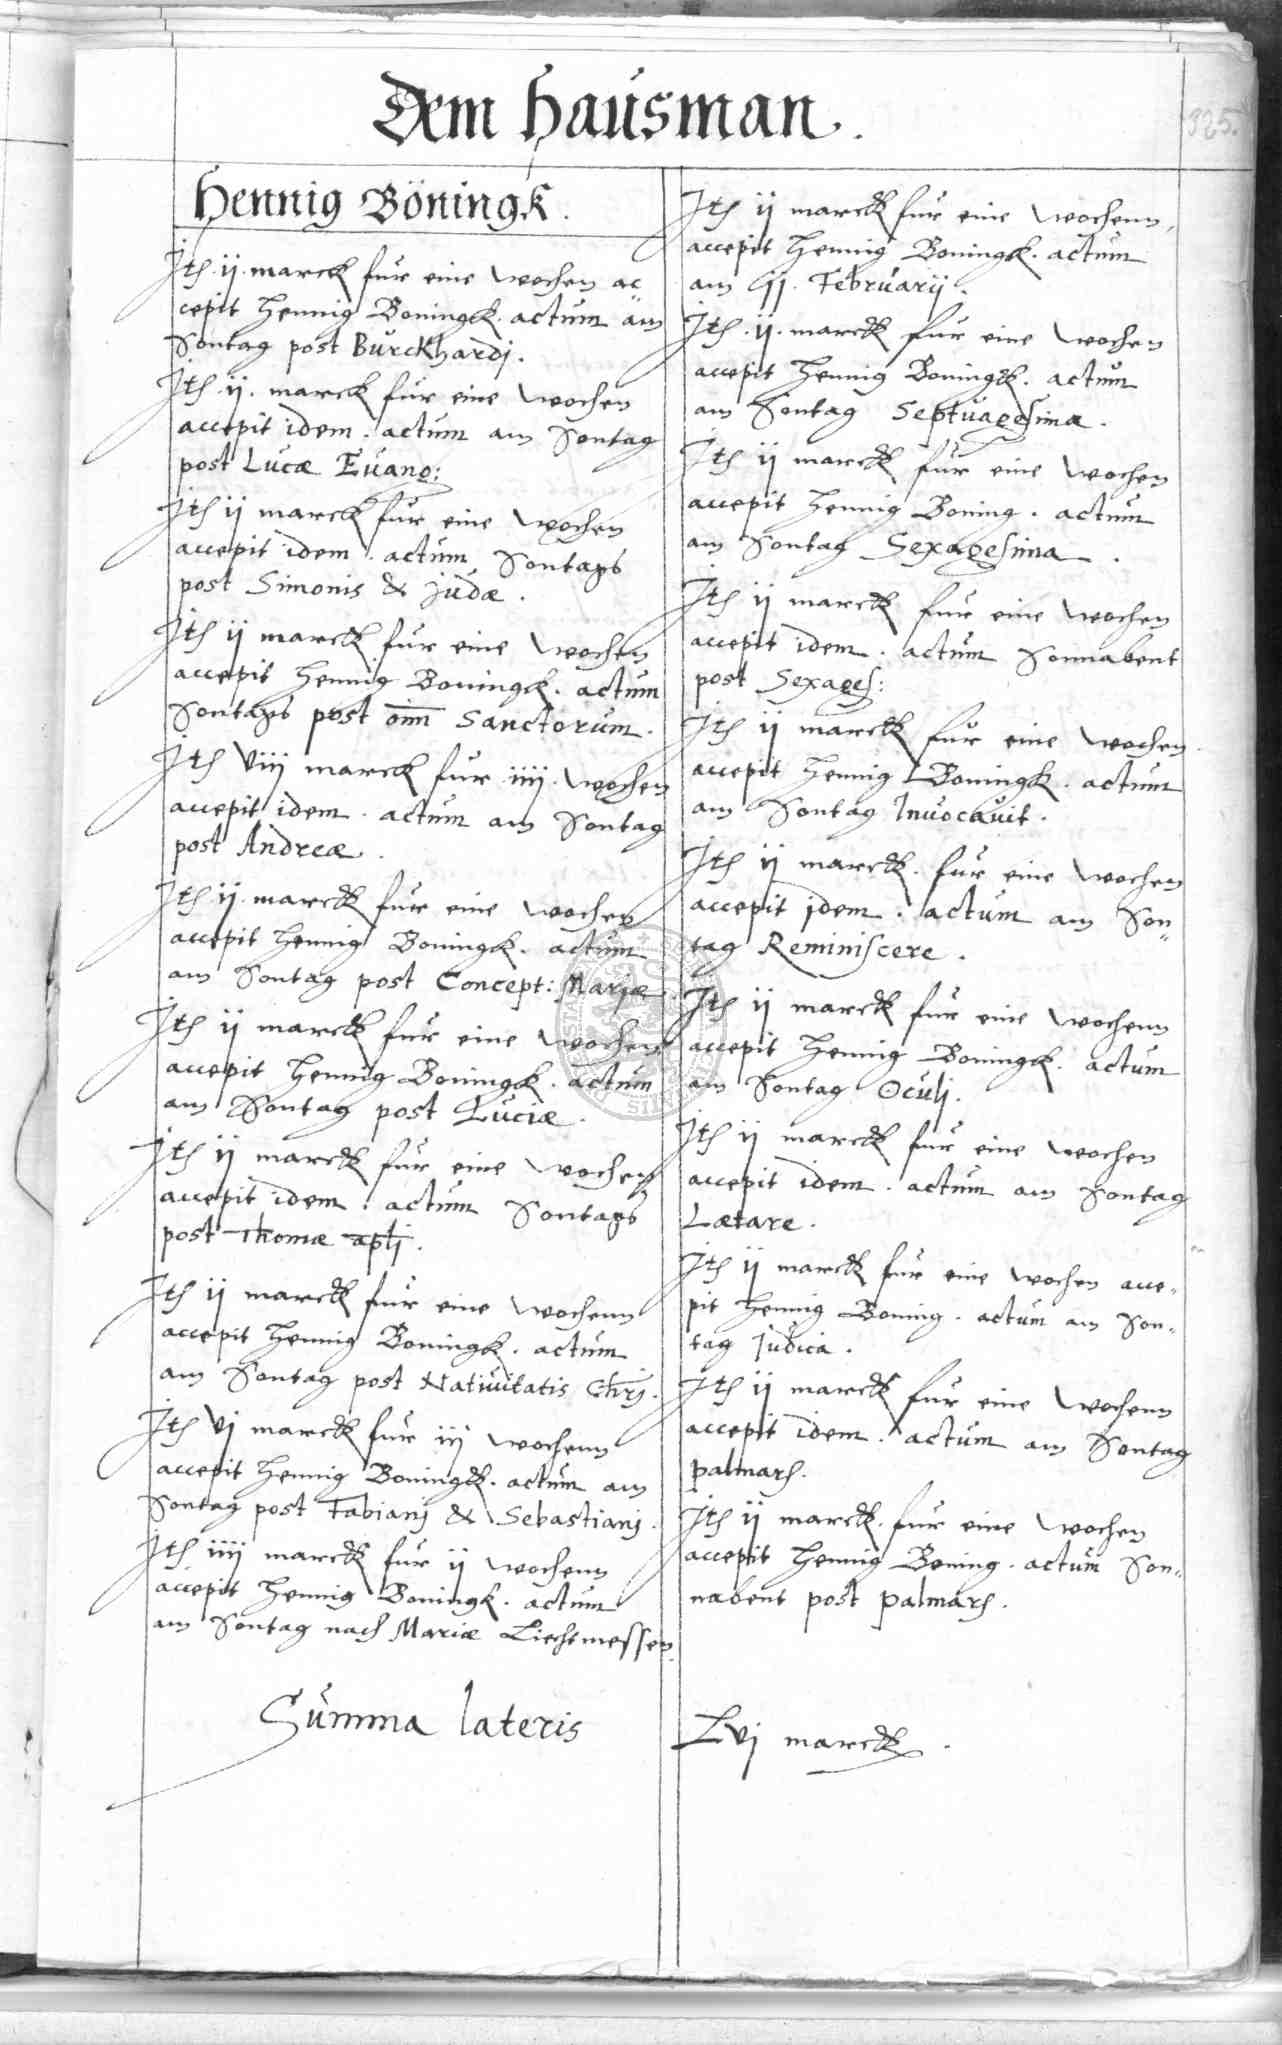 Dem Hausman.
325.
Hennig Böningk.
Itℏ .ij. marck fur eine wochen ac
cepit Hennig Boningck. actum am
Sontag post Burckhardj.
Itℏ .ij. marck fur eine wochen
accepit idem. actum am Sontag
post Lucæ Evang:
Itℏ ij marck fur eine wochen
accepit idem. actum Sontags
post Simonis & Judæ.
Itℏ ij marck fur eine wochen
accepit Hennig Boningck. actum
Sontags post oim̄ Sanctorum.
Itℏ viij marck fur iiij. wochen
accepit idem. actum am Sontag
post Andreæ.
Itℏ ij. marck fur eine wochen
accepit Hennig Boningck. actum
am Sontag post Concept: Mariæ
Itℏ ij marck fur eine wochen
accepit Hennig Boningck. actum
am Sontag post Luciæ.
Itℏ ij marck fur eine wochen
accepit idem. actum Sontags
post Thomæ apl̄j.
Itℏ ij marck fur eine wochenn
accepit Hennig Boningk. actum
am Sontag post Nativitatis Chrj.
Itℏ vj marck fur iij wochenn
accepit Hennig Boningck. actum am
Sontag post Fabianj & Sebastianj.
Itℏ iiij marck fur ij wochenn
accepit Hennig Boningk. actum
am Sontag nach Mariæ Liechtmessen.
Summa lateris
Itℏ ij marck fur eine wochenn,
accepit Hennig Boningk. actum
am 11. Februarij.
Itℏ .ij. marck fur eine wochen
accepit Hennig Boningck. actum
am Sontag Septuagesima.
Itℏ ij marck fur eine wochen
accepit Hennig Boning. actum
am Sontag Sexagesima.
Itℏ ij marck fur eine wochen
accepit idem. actum Sonnabent
post Sexages:
Itℏ ij marck fur eine wochen
accepit Hennig Boningk. actum
am Sontag Invocavit.
Itℏ ij marck. fur eine wochen
accepit idem. actum am Son„
tag Reminiscere.
Itℏ ij marck fur eine wochenn
accepit Hennig Boningck. actum
am Sontag Oculj.
Itℏ ij marck fur eine wochen
accepit idem. actum am Sontag
Lætare.
Itℏ ij marck fur eine wochen acce„
pit Hennig Boning. actum am Son„
tag Judica.
Itℏ ij marck fur eine wochenn
accepit idem. actum am Sontag
palmarℏ.
Itℏ ij marck. fur eine wochen
accepit Hennig Boning. actum Son„
nabent post palmarℏ.
Lvj marck.